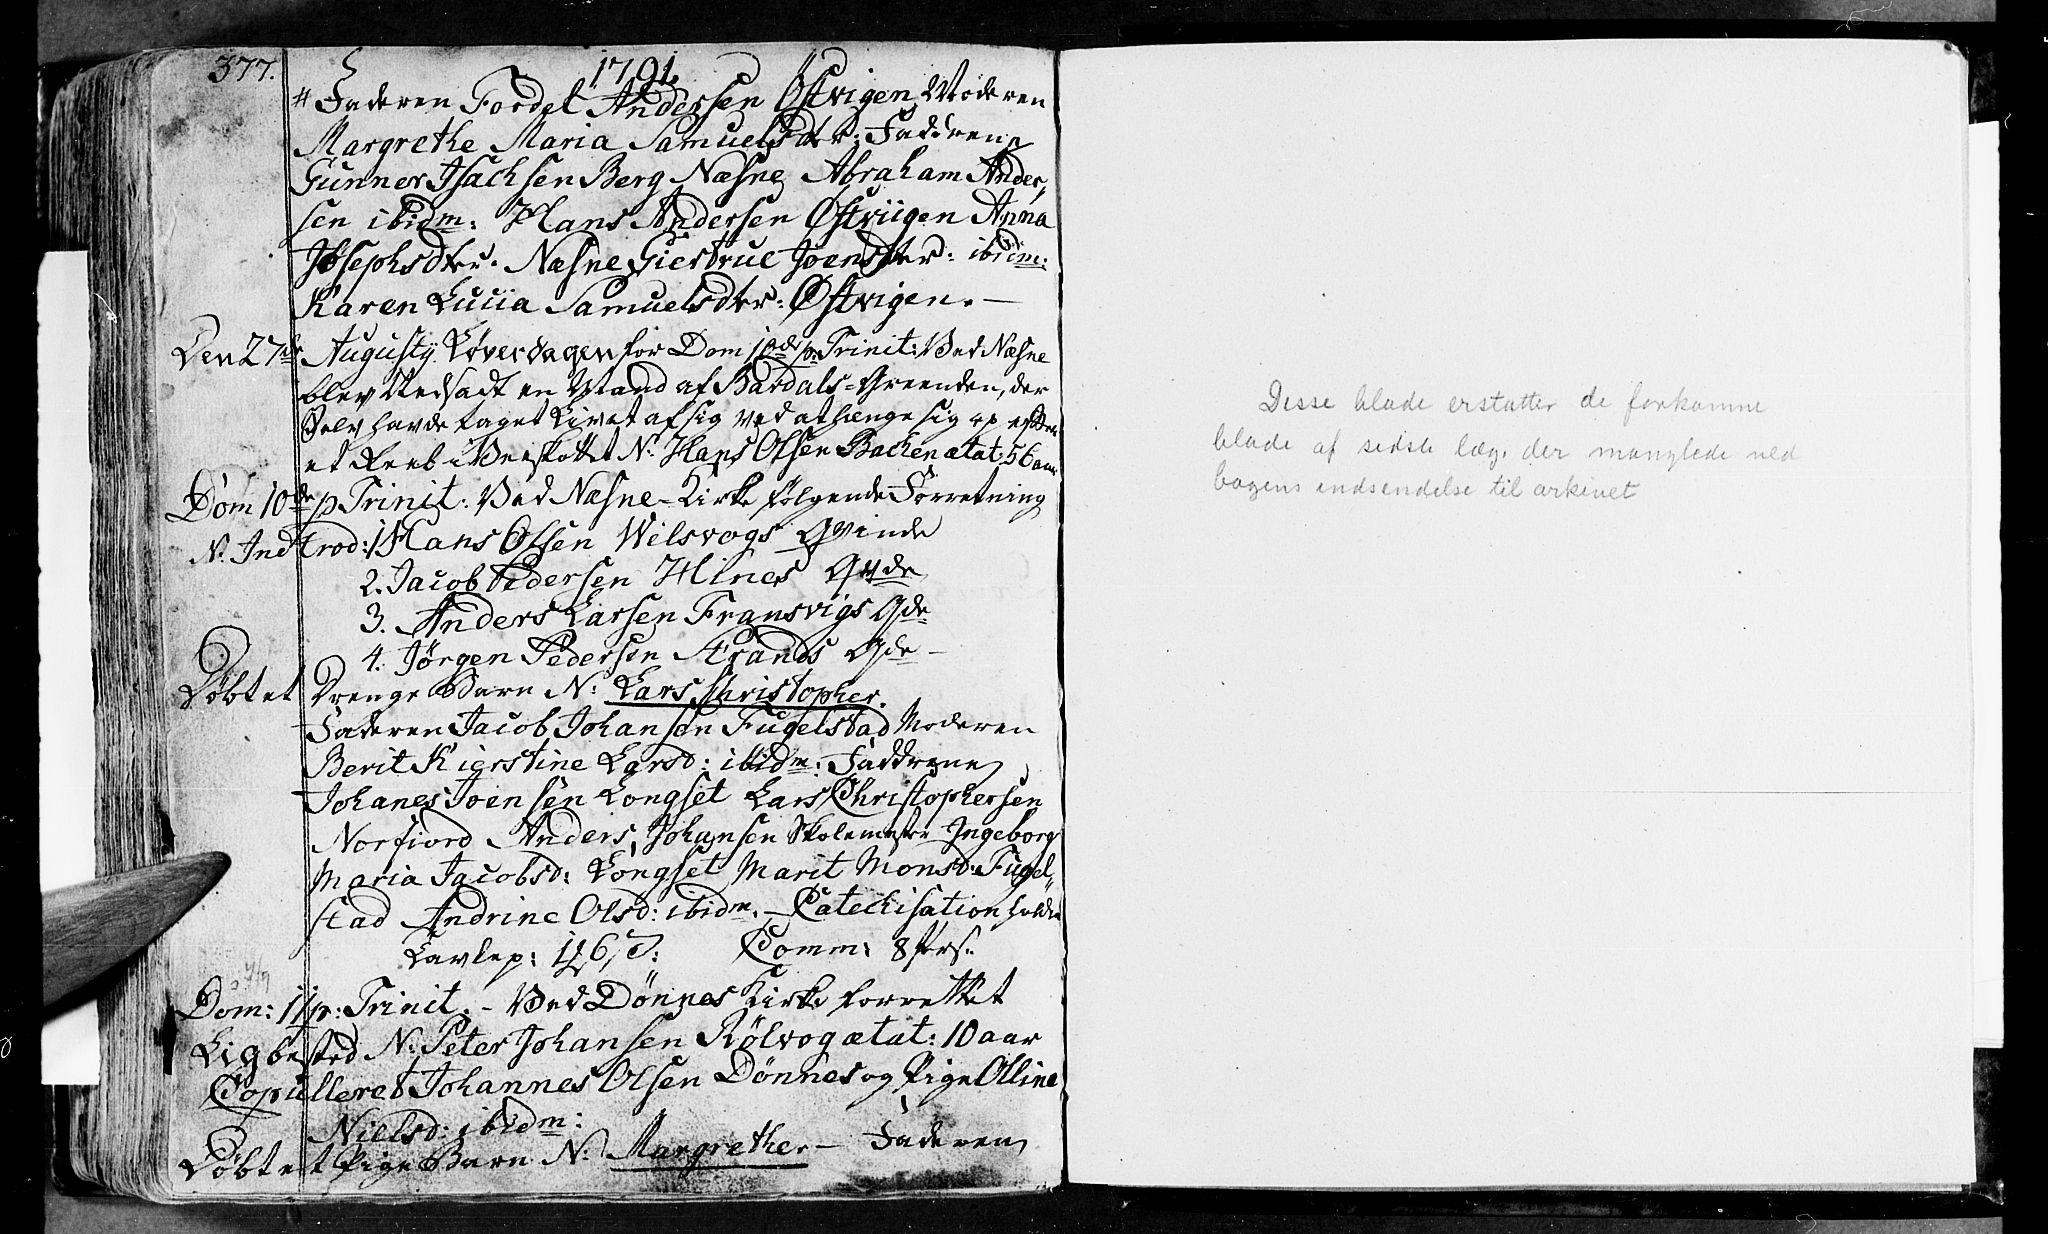 377. 1791.
# Faderen Fordel Andersen Östvigen Moderen
Margrethe Maria Samuelsdter: Faddrene
Gunner Isachsen Berg Næsne Abraham Ander,,
sen ibidm: Hans Andersen Östviigen Anna
Josephsdter. Næsne Giertrue Joensdter: ibidm:
Karen Lucia Samuelsdter: Östvigen. —
Den 27de Augustij Löverdagen for Dom 10de p Trinit: Ved Næsne
blev Nedsadt en Mand af Bardals-Greenden, der
Selv havde taget Livet af sig ved at hænge sig op efter
et Reeb i N: Hans Olsen Bachen ætat: 56 aar
Dom 10de p Trinit: Ved Næsne-Kirke følgende Forretning
N. Introd: 1 Hans Olsen Wilsvogs Qvinde
2. Jacob Pedersen Hines Qvde
3. Anders Larsen Fransvigs Qde
4. Jörgen Pedersen Strands Qde —
Döbtet Drenge Barn N: Lars Christopher.
Faderen Jacob Johansen Fugelstad Moderen
Berit Kierstine Larsd: ibidm: Faddrene
Johanes Joensen Longset Lars Christophersen
Norfiord Anders Johansen Skolemester Ingeborg
Maria Jacobsd: Longset Marit Monsd: Fugel,,
stad Andrine Olsd: ibidm. — Catechisation holdt
Comm: 8 Pers.
Dom: 11 p: Trinit. - Ved Dönnes Kirke forrettet
Ligbested N: Peter Johansen Rölvog ætat: 10 aar
Copulleret Johannes Olsen Dönnes og Pige Olline
Nielsd: ibidm:
Döbtet Pige Barn N: Margrethe. — Faderen
Disse blade erstatter de forkomne
blade af sidste læg, der manglede ved
bogens indsendelse til arkivet